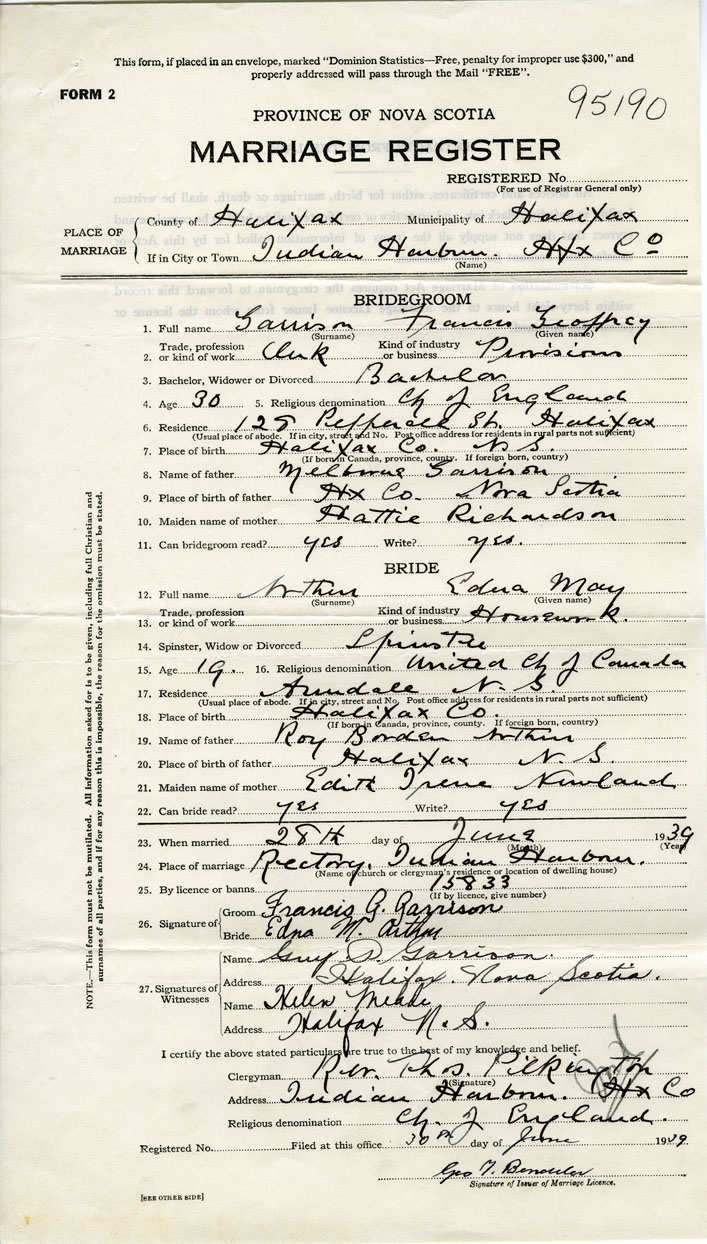 This form, if placed in an envelope, marked "Dominion Statistics—Free, penalty for improper use $300," and
properly addressed will pass through the Mail "FREE".
FORM 2
95190
PROVINCE OF NOVA SCOTIA
MARRIAGE REGISTER
REGISTERED No.
(For use of Registrar General only)
PLACE OF MARRIAGE
County of Halifax Municipality of Halifax
If in City or Town Indian Harbour. Hfx Co
(Name)
BRIDEGROOM
1. Full name Garrison Francis Geoffrey
(Surname) (Given name)
2. Trade, profession or kind of work Clerk Kind of industry or business Provisions
3. Bachelor, Widower or Divorced Bachelor
4. Age 30 5. Religious denomination Ch of England
6. Residence 128 Pepperell St. Halifax
(Usual place of abode. If in city, street and No. Post office address for residents in rural parts not sufficient)
7. Place of birth Halifax Co. N S.
(If born in Canada, province, county. If foreign born, country)
8. Name of father Melbourne Garrison
9. Place of birth of father Hx Co. Nova Scotia
10. Maiden name of mother Hattie Richardson
11. Can bridegroom read? yes Write? yes.
BRIDE
12. Full name Arthur Edna May
(Surname) (Given name)
13. Trade, profession or kind of work Kind of industry or business Housework.
14. Spinster, Widow or Divorced Spinster
15. Age 19. 16. Religious denomination United Ch of Canada
17. Residence Armdale N. S.
(Usual place of abode. If in city, street and No. Post office address for residents in rural parts not sufficient)
18. Place of birth Halifax Co.
(If born in Canada, province, county. If foreign born, country)
19. Name of father Roy Borden Arthur
20. Place of birth of father Halifax N. S.
21. Maiden name of mother Edith Irene Newland
22. Can bride read? yes Write? yes
23. When married 28th day of June 1939
(Month) (Year)
24. Place of marriage Rectory, Indian Harbour.
(Name of church or clergyman's residence or location of dwelling house)
25. By licence or banns. 15833
(If by licence, give number)
26. Signature of
Groom Francis G. Garrison
Bride Edna M. Arthur
27. Signatures of Witnesses
Name Guy Garrison.
Address Halifax. Nova Scotia.
Name Helen Meade
Address Halifax N. S.
I certify the above stated particulars are true to the best of my knowledge and belief.
Clergyman Rev. Thos. Pilkington
(Signature)
Address Indian Harbour. Hx Co
Religious denomination Ch. of England.
Registered No. Filed at this office 30th day of June 1939
Geo T.
Signature of Issuer of Marriage Licence.
[SEE OTHER SIDE]
NOTE.—This form must not be mutilated. All information asked for is to be given, including full Christian and
surnames of all parties, and if for any reason this is impossible, the reason for the omission must be stated.